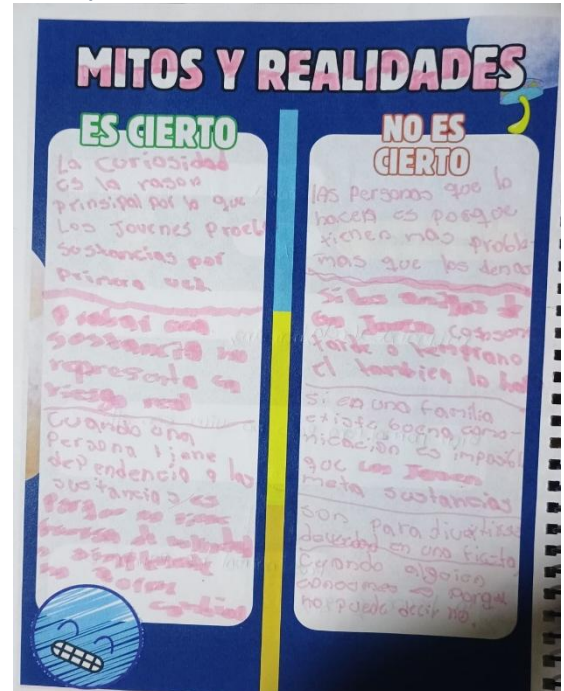 MITOS Y REALIDADES
ES CIERTO
La curiosidad
es la rason
prinsipal por lo que
Los Jovenes prueb
sustancias por
Primera vez
Probar una
sustancia no
representa un
riesgo real
Cuando una
Persona tiene
dependencia a las
sustancias es
Porque no tiene
NO ES
CIERTO
lAs Personas que lo
hacen es porque
tienen mas proble
mas que los demas
Si los amigos
un Joven consum
tarde o temprano
el tambien lo ha
Si en una familia
existe buena comu-
nicacion es imposibl
que un Joven
meta sustancias
son Para divertirse
deverdad en una fiesta
Cuando alguien
conocemos es porque
no puede decir no.